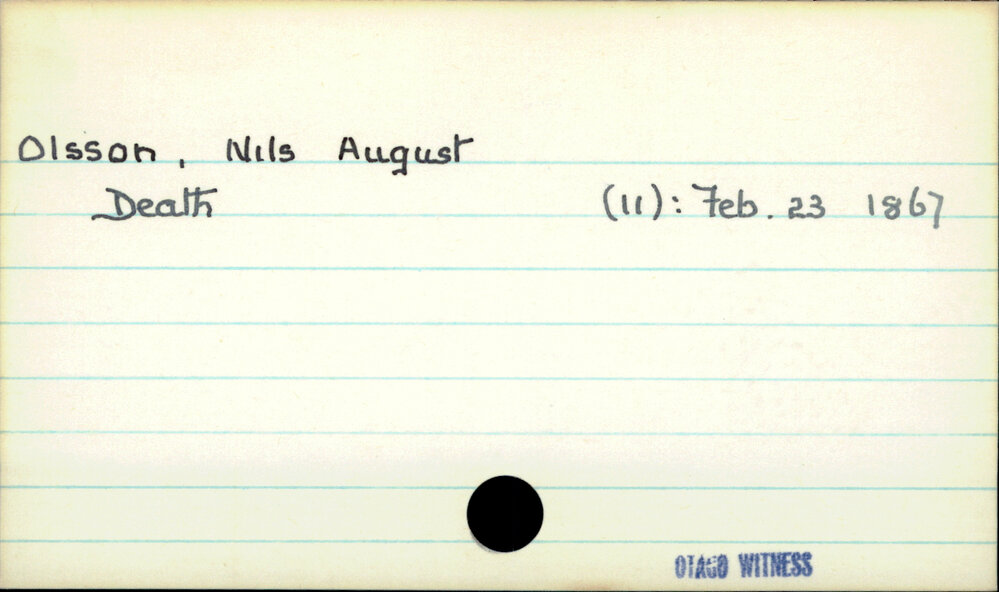 Olsson, Nils August
Death (11): Feb. 23 1867
OTAGO WITNESS